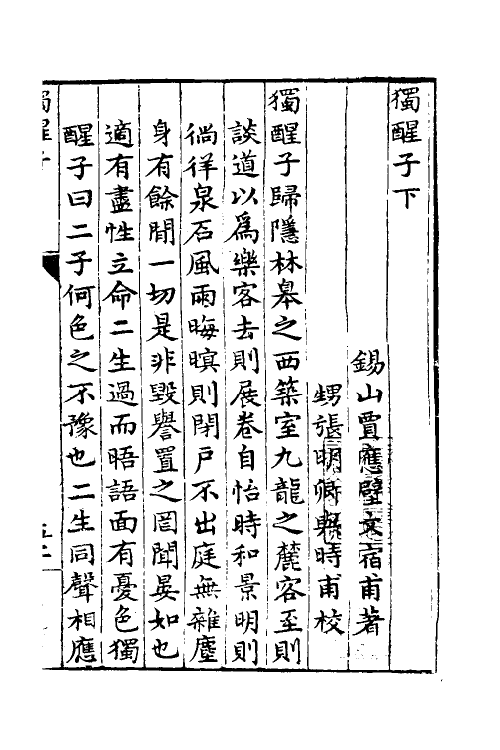 獨醒子下
錫山賈應璧文宿甫著
甥張明卿甫時甫校
獨醒子歸隱林皋之西築室九龍之麓客至則
談道以爲樂客去則展卷自怡時和景明則
徜徉泉石風雨晦暝則閉戶不出庭無雜塵
身有餘閒一切是非毀譽置之罔聞晏如也
適有盡性立命二生過而晤語面有憂色獨
醒子曰二子何色之不豫也二生同聲相應